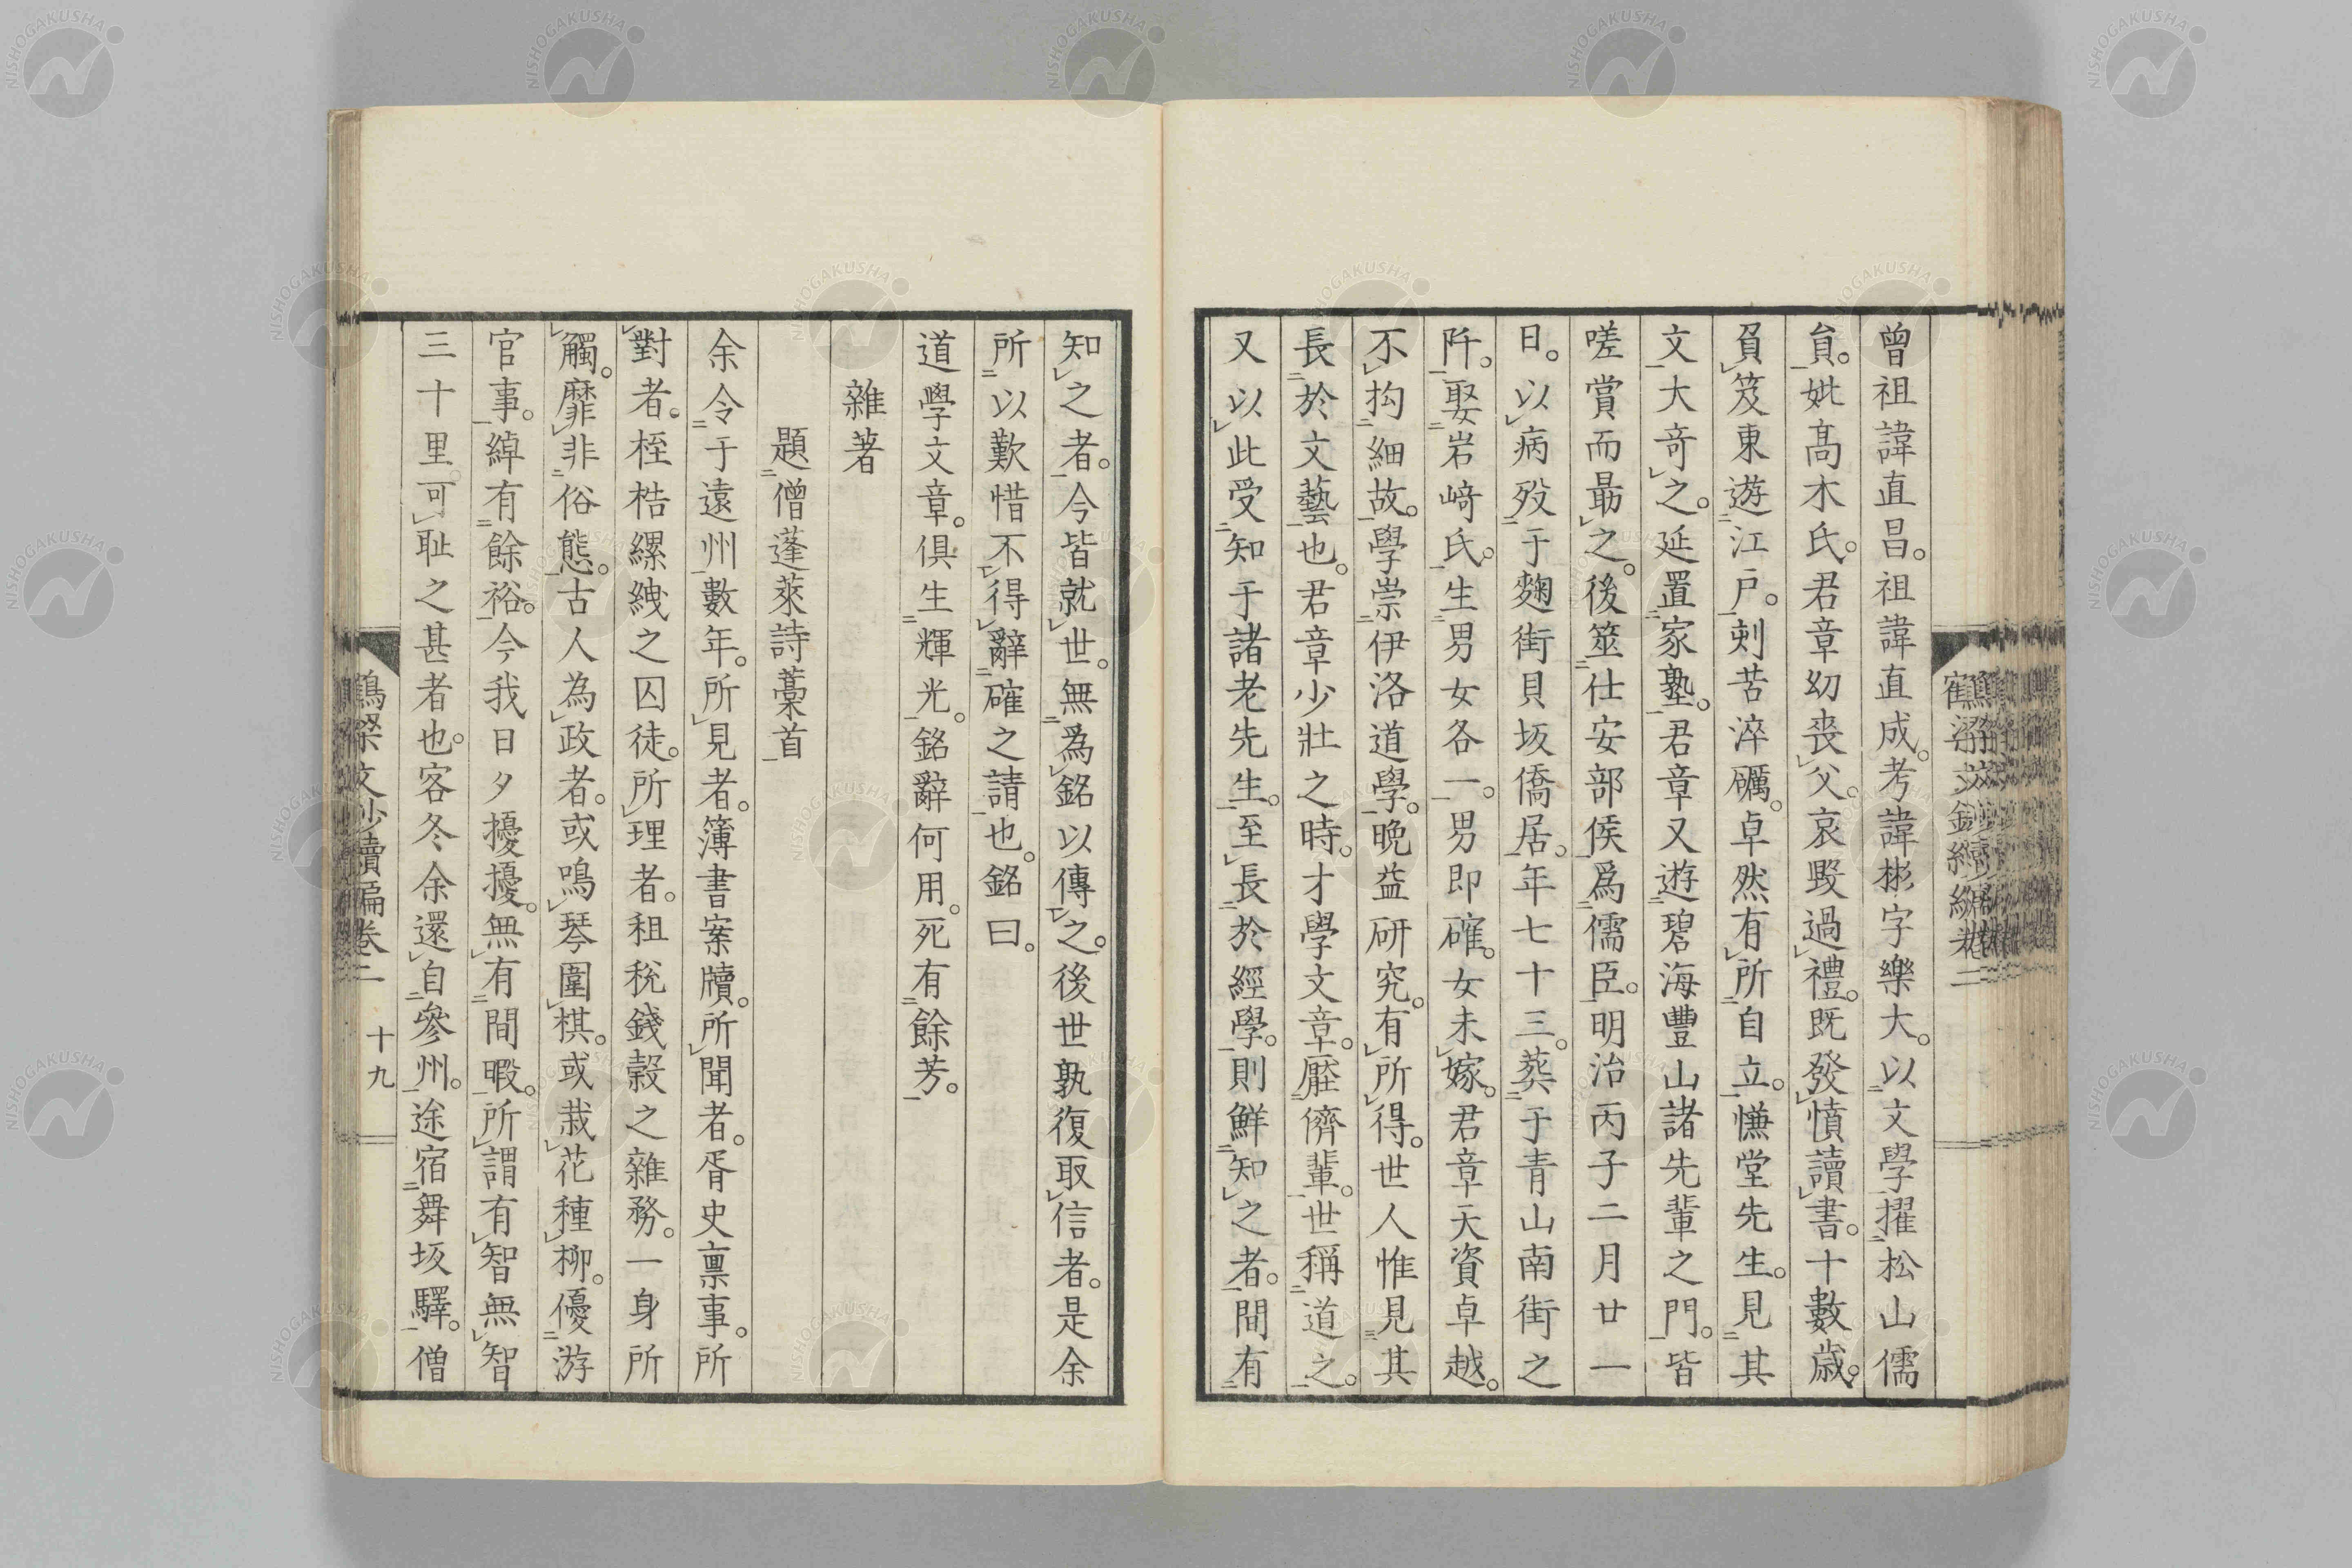 曾祖諱直昌。祖諱直成。考諱彬字樂大。以文學擢松山儒
員。妣髙木氏。君章幼喪父。哀毀過禮。既發憤讀書。十數歳。
負笈東遊江戸。刺苦淬礪。卓然有所自立。慊堂先生。見其
文大奇之。延置家塾。君章又遊碧海豐山諸先輩之門。皆
嗟賞而最之。後筮仕安部侯爲儒臣。明治丙子二月廿一
日。以病歿于麴街貝坂僑居。年七十三。葬于青山南街之
阡。娶岩﨑氏。生男女各一。男即確。女未嫁。君章天資卓越。
不拘細故。學崇伊洛道學。晩益研究。有所得。世人惟見其
長於文藝也。君章少壯之時。才學文章。壓儕輩。世稱道之。
又以此受知于諸老先生。至長於經學。則鮮知之者。間有
知之者。今皆就世。無爲銘以傳之。後世孰復取信者。是余
所以歎惜不得辭確之請也。銘曰。
道學文章。俱生輝光。銘辭何用。死有餘芳。
雜著
題僧蓬萊詩藁首
余令于遠州數年。所見者。簿書案牘。所聞者。胥史稟事。所
對者。桎梏縲絏之囚徒。所理者。租稅錢穀之雜務。一身所
觸。靡非俗態。古人為政者。或鳴琴圍棋。或栽花種柳。優游
官事。綽有餘裕。今我日夕擾擾。無有間暇。所謂有智無智
三十里。可耻之甚者也。客冬余還自參州。途宿舞坂驛。僧
鶴梁文鈔續編卷二
十九